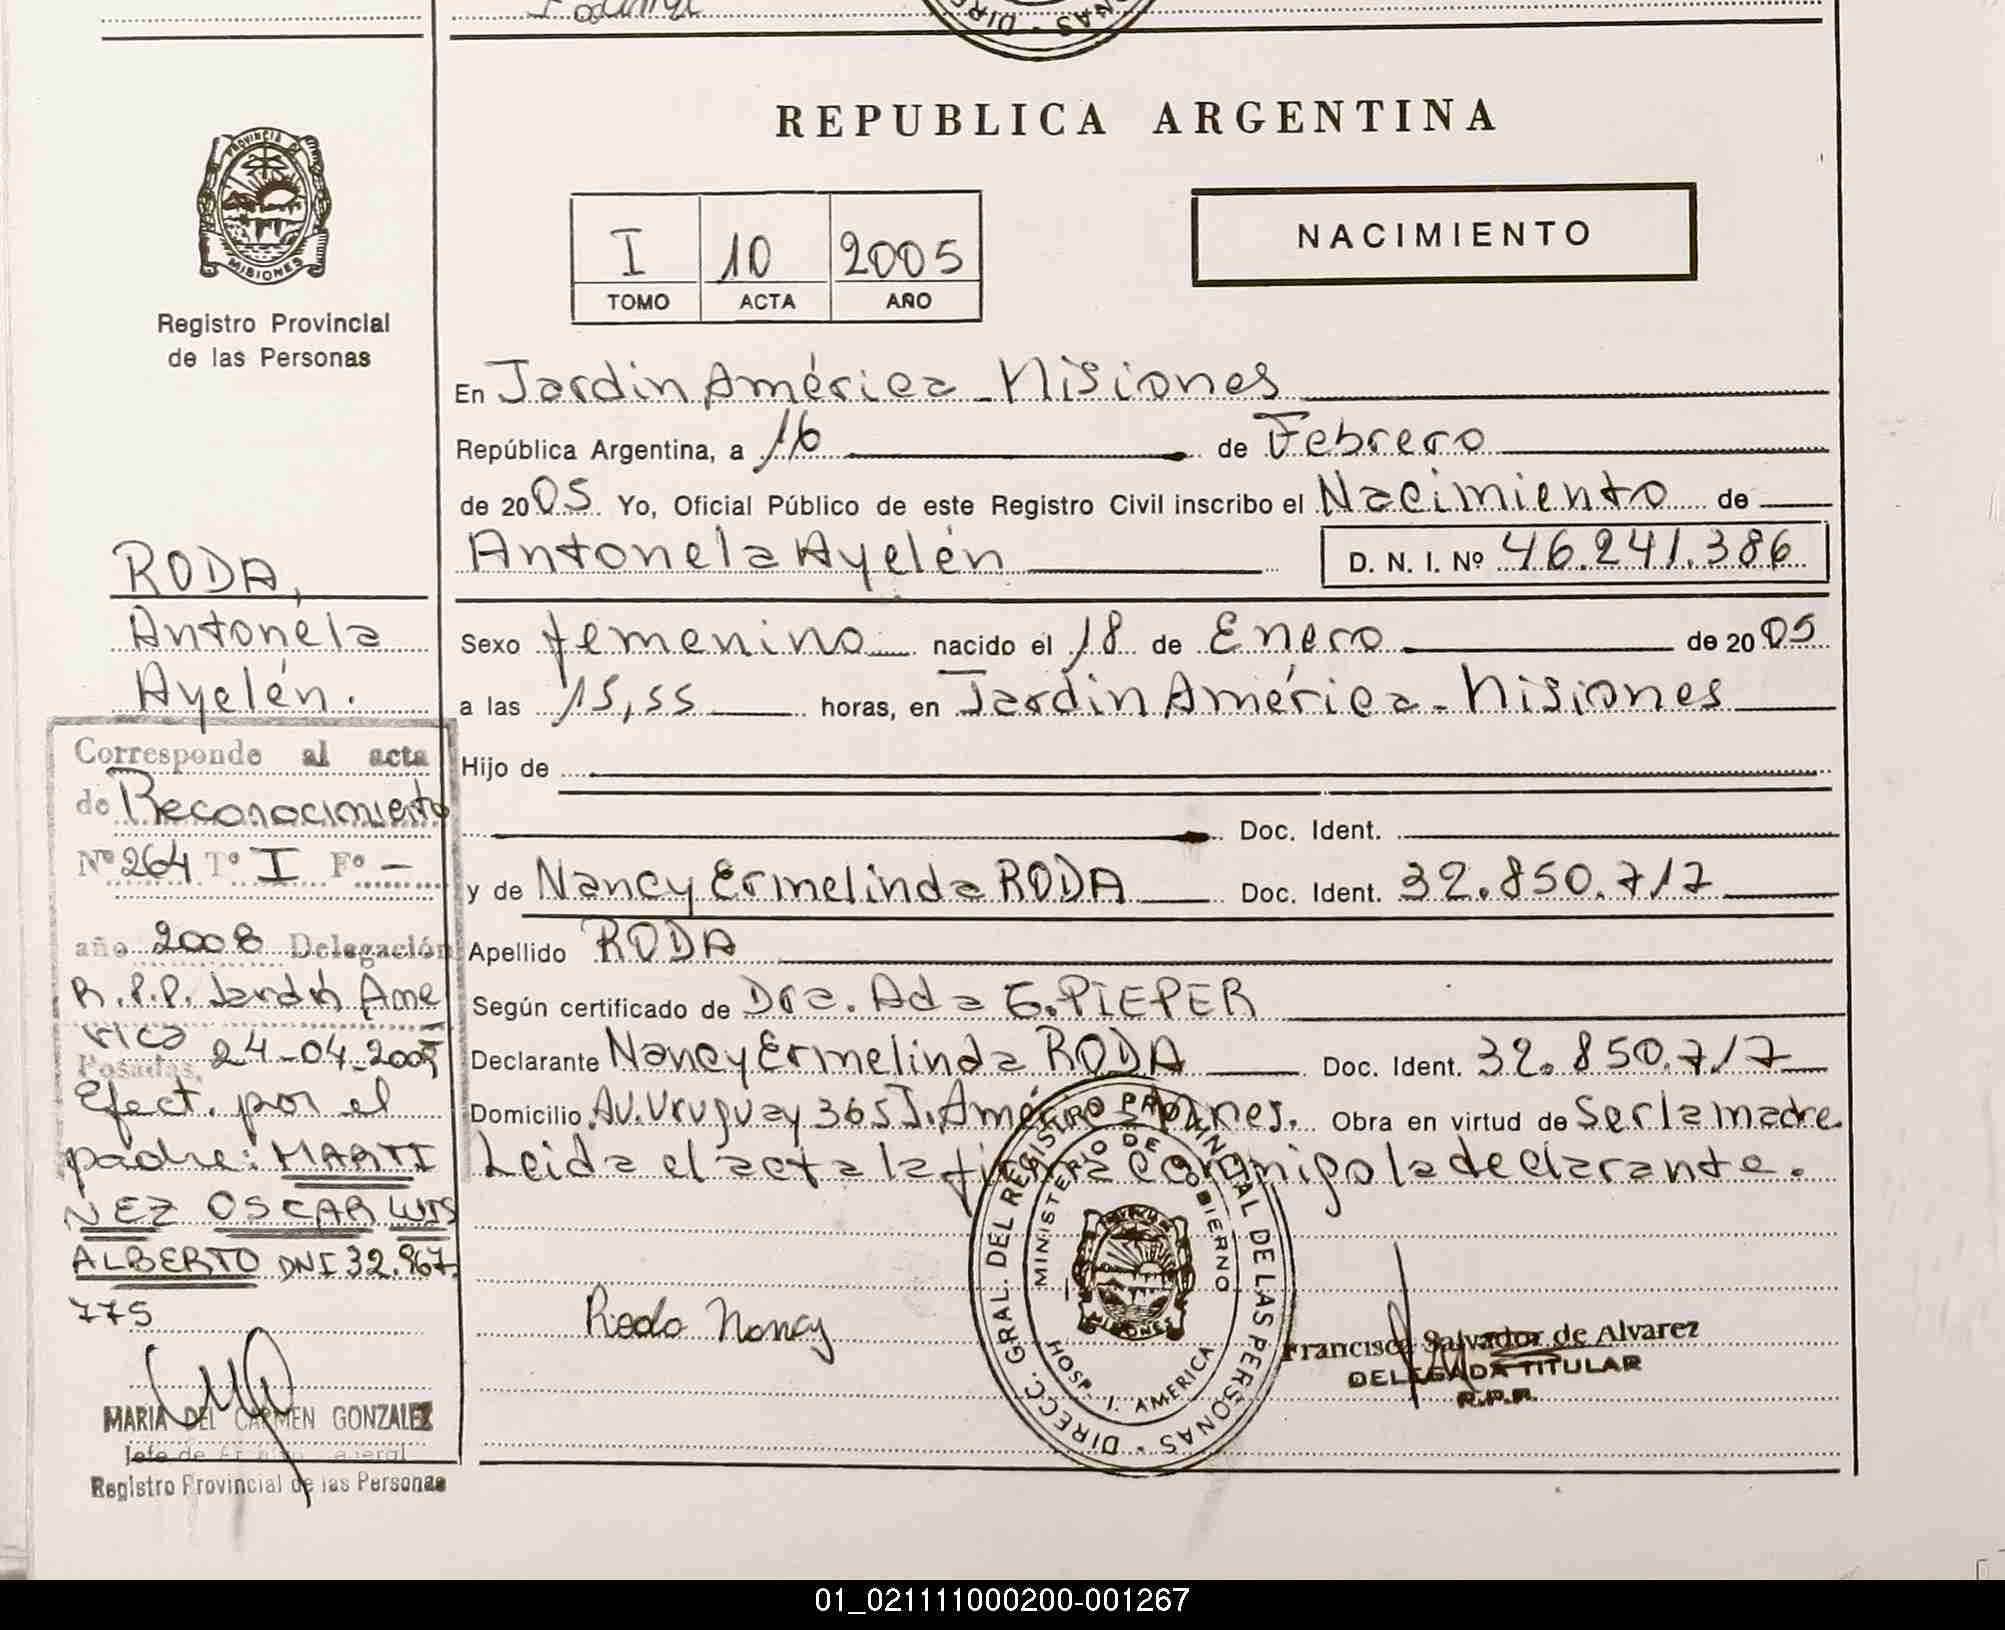 REPUBLICA ARGENTINA
PROVINCIA DE
MISIONES
Registro Provincial
de las Personas
I 10 2005
TOMO ACTA AÑO
NACIMIENTO
En Jardin América - Misiones
República Argentina, a 16 de Febrero
de 2005 Yo, Oficial Público de este Registro Civil inscribo el Nacimiento de
Antonela Ayelén D. N. I. Nº 46.241.386
Sexo femenino nacido el 18 de Enero de 2005
a las 15,55 horas, en Jardin América - Misiones
Hijo de
Doc. Ident.
y de Nancy Ermelinda RODA Doc. Ident. 32.850.717
Apellido RODA
Según certificado de Dra. Ada E. PIEPER
Declarante Nancy Ermelinda RODA Doc. Ident. 32.850.717
Domicilio Av. Uruguay 365 J. Amé Obra en virtud de Ser la madre
Leida el acta la firma conmigo la declarante.
Roda Nancy
DIRECC. GRAL. DEL REGISTRO PROVINCIAL DE LAS PERSONAS
MINISTERIO DE GOBIERNO
MISIONES
HOSP. J. AMERICA
Francisca Salvador de Alvarez
DELEGADA TITULAR
R.P.P.
RODA,
Antonela
Ayelén.
Corresponde al acta
de Reconocimiento
Nº 264 Tº I Fº -
año 2008 Delegación
R.P.P. Jardin Ame
rica 24-04-2009
Posadas,
Efect. por el
padre: MARTI
NEZ OSCAR LUIS
ALBERTO DNI 32.867.
775
MARIA DEL CARMEN GONZALEZ
Jefe de
Registro Provincial de las Personas
01_021111000200-001267